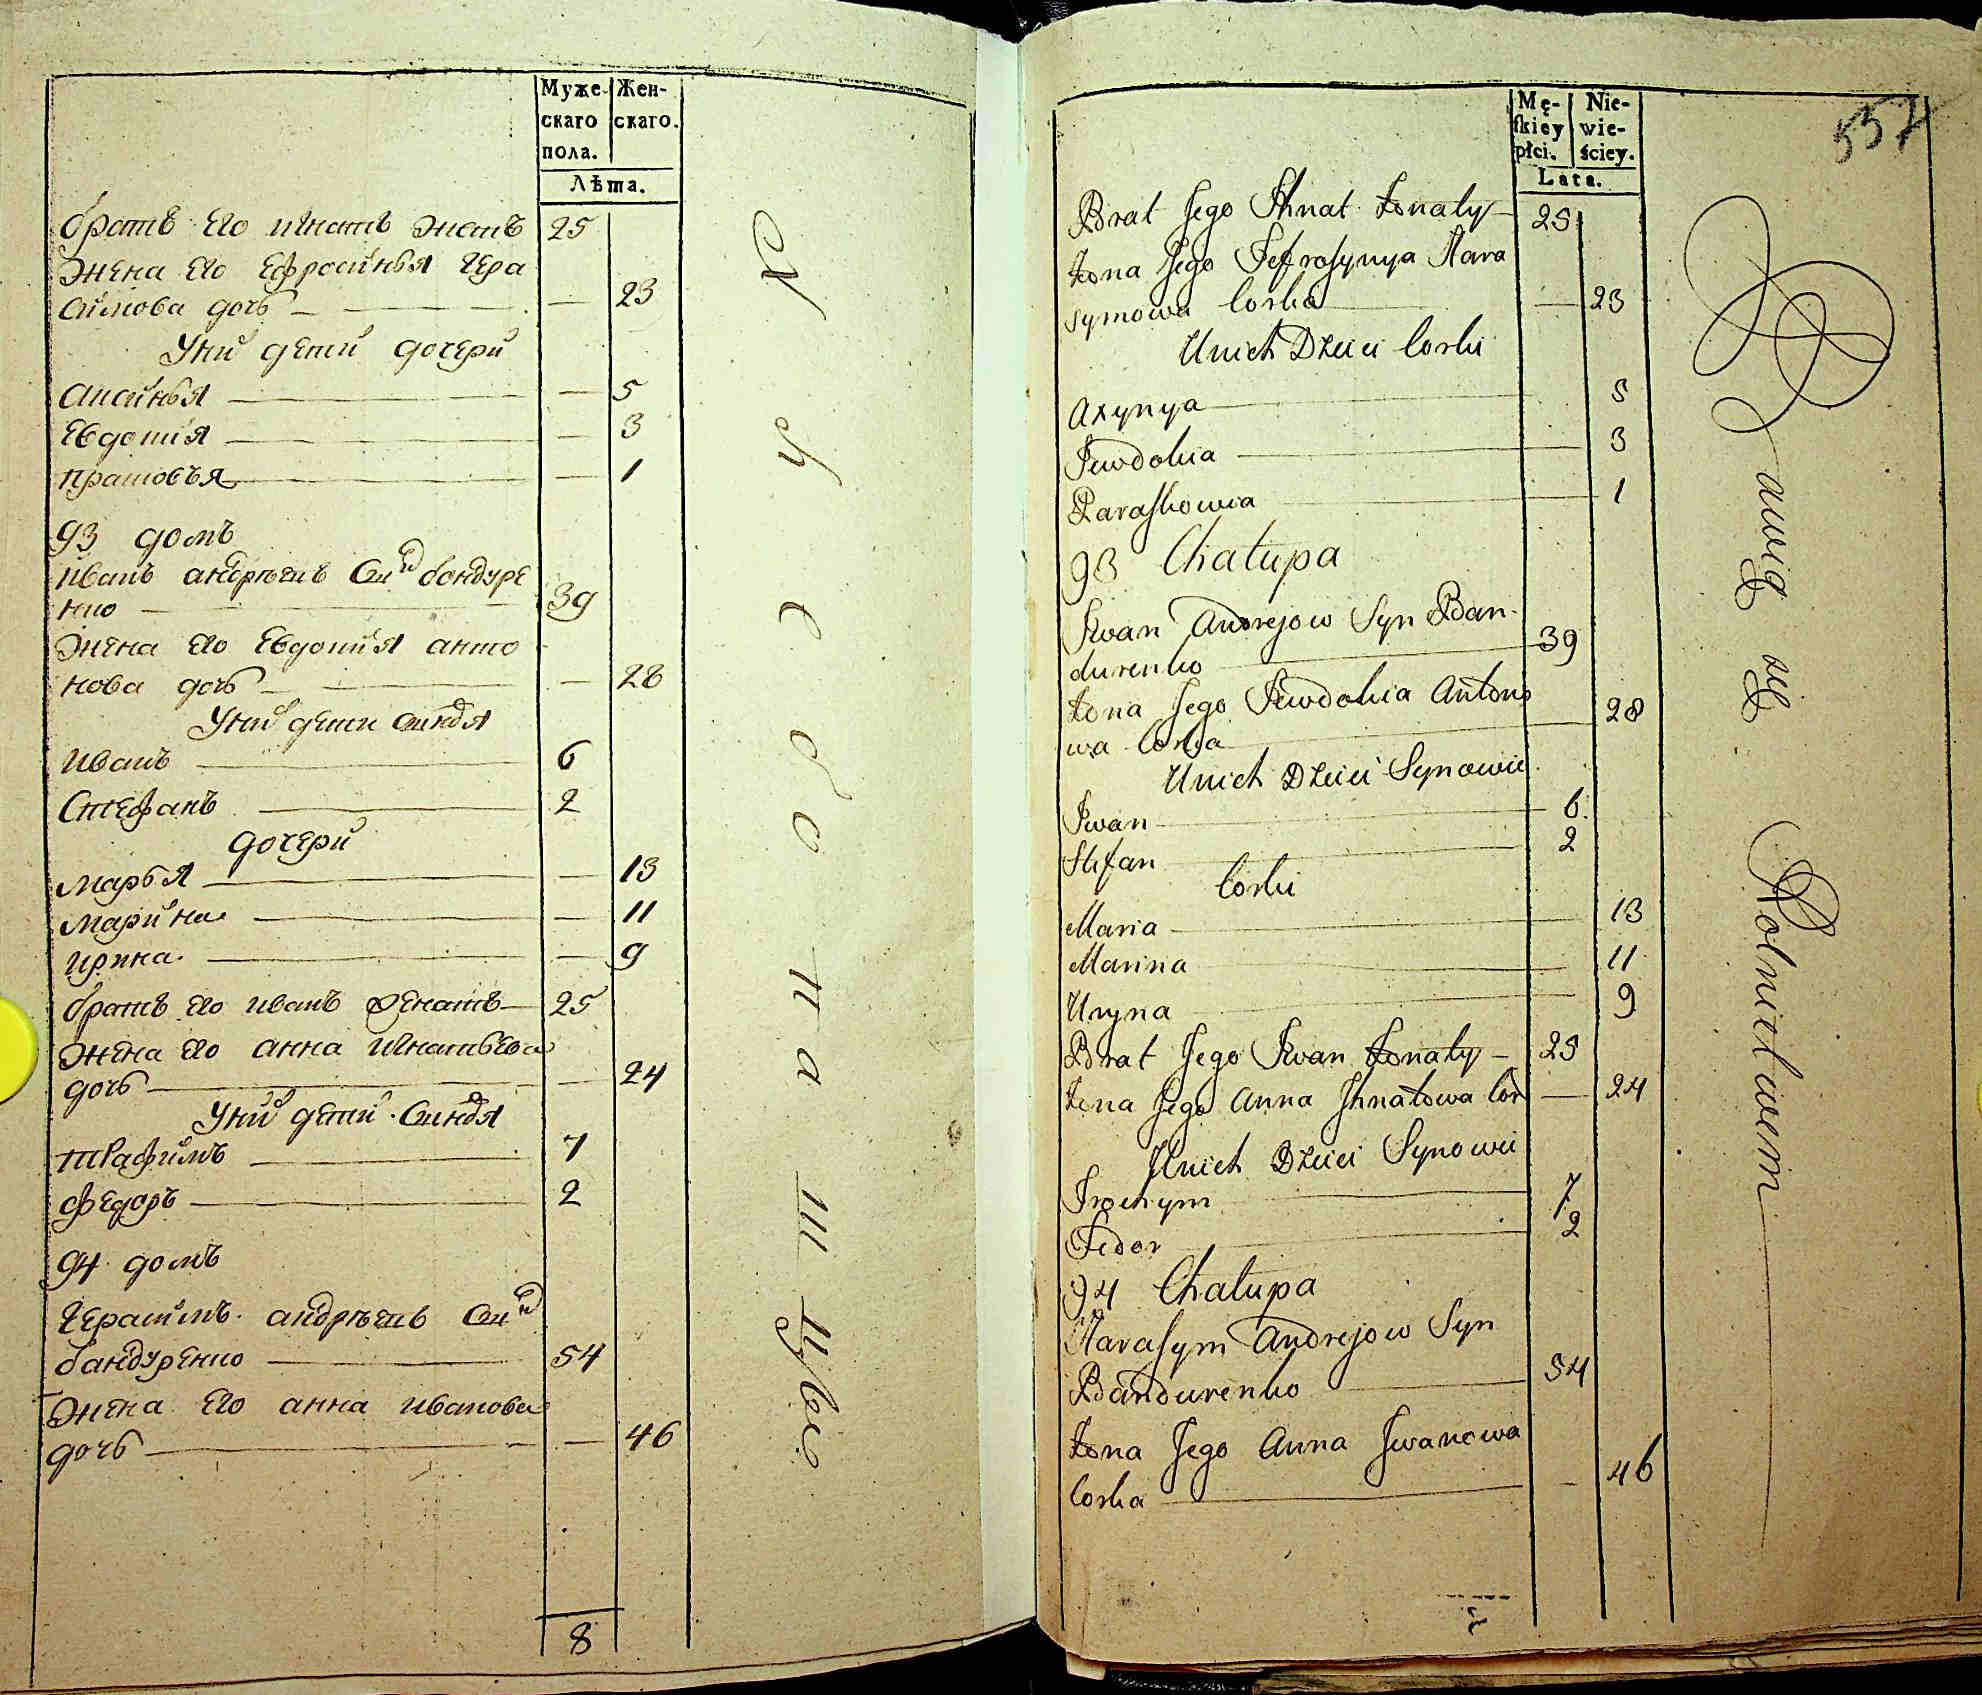 Муже-
скаго
пола.
Жен-
скаго.
Лѣта.
братъ его игнатъ женатъ 25
жена его ефросинья гера
симова дочь — 23
У нихъ дети дочери
Аксинья — 5
Евдокия — 3
прасковья — 1
93 домъ
иванъ андрѣевъ Синъ бондуре
нко 39
жена его Евдокия анто
нова дочь — 28
У нихъ дети Синовя
иванъ 6
Стефанъ 2
дочери
марья — 13
марина — 11
ирина — 9
братъ его иванъ женатъ 25
жена его анна игнатьева
дочь — 24
У нихъ дети Синовя
трафимъ 7
федоръ 2
94 домъ
герасимъ андрѣевъ Синъ
бандуренко 54
жена его анна иванова
дочь — 46
8
537
Mę-
ſkiey
płci.
Nie-
wie-
ściey.
Lata.
Brat Jego Ihnat Żonaty 25
Żona Jego Jefrosynya Hara
symowa Corka — 23
U nich Dzieci Corki
Axynya 5
Jewdokia 3
Paraskowia 1
93 Chałupa
Iwan Andrejow Syn Ban-
durenko 39
Żona Jego Jewdokia Antono
wa Corka 28
U nich Dzieci Synowie
Iwan 6
Stefan 2
Corki
Maria 13
Marina 11
Uryna 9
Brat Jego Iwan Żonaty 25
Żona Jego Anna Ihnatowa Cor — 24
U nich Dzieci Synowie
7
Fedor 2
94 Chałupa
Harasym Andrejow Syn
Bandurenko 54
Żona Jego Anna Iwanowa
Corka — 46
Bawią się Rolnictwem